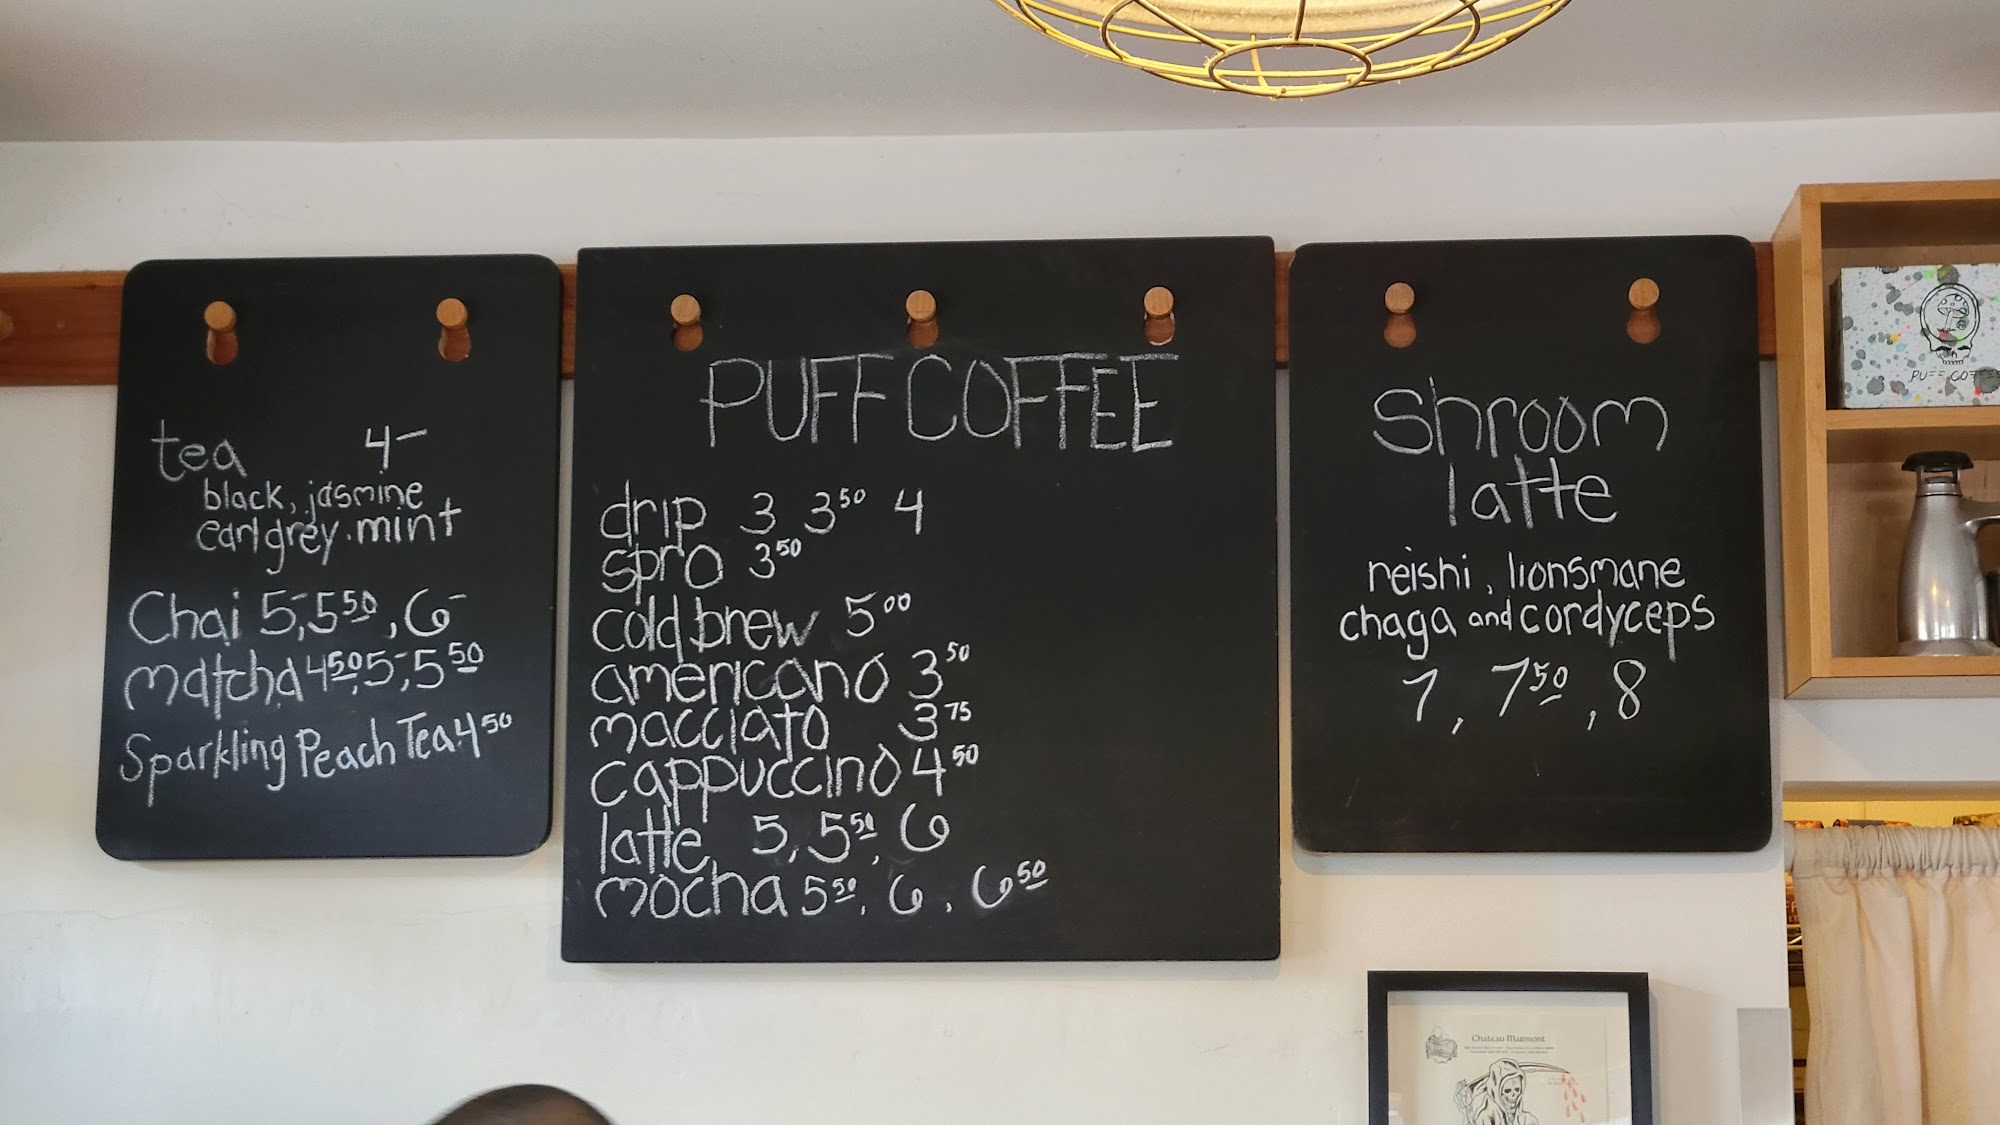 tea 4-
black, jasmine
earl grey. mint
Chai 5-, 5 50, 6-
matcha 4 50, 5-, 5 50
Sparkling Peach Tea 4 50
PUFF COFFEE
drip 3 3 50 4
spro 3 50
cold brew 5 00
americano 3 50
macciato 3 75
cappuccino 4 50
latte 5, 5 50, 6
mocha 5 50, 6, 6 50
Shroom
latte
reishi, lionsmane
chaga and cordyceps
7, 7 50, 8
PUFF COFFEE
Chateau Marmont